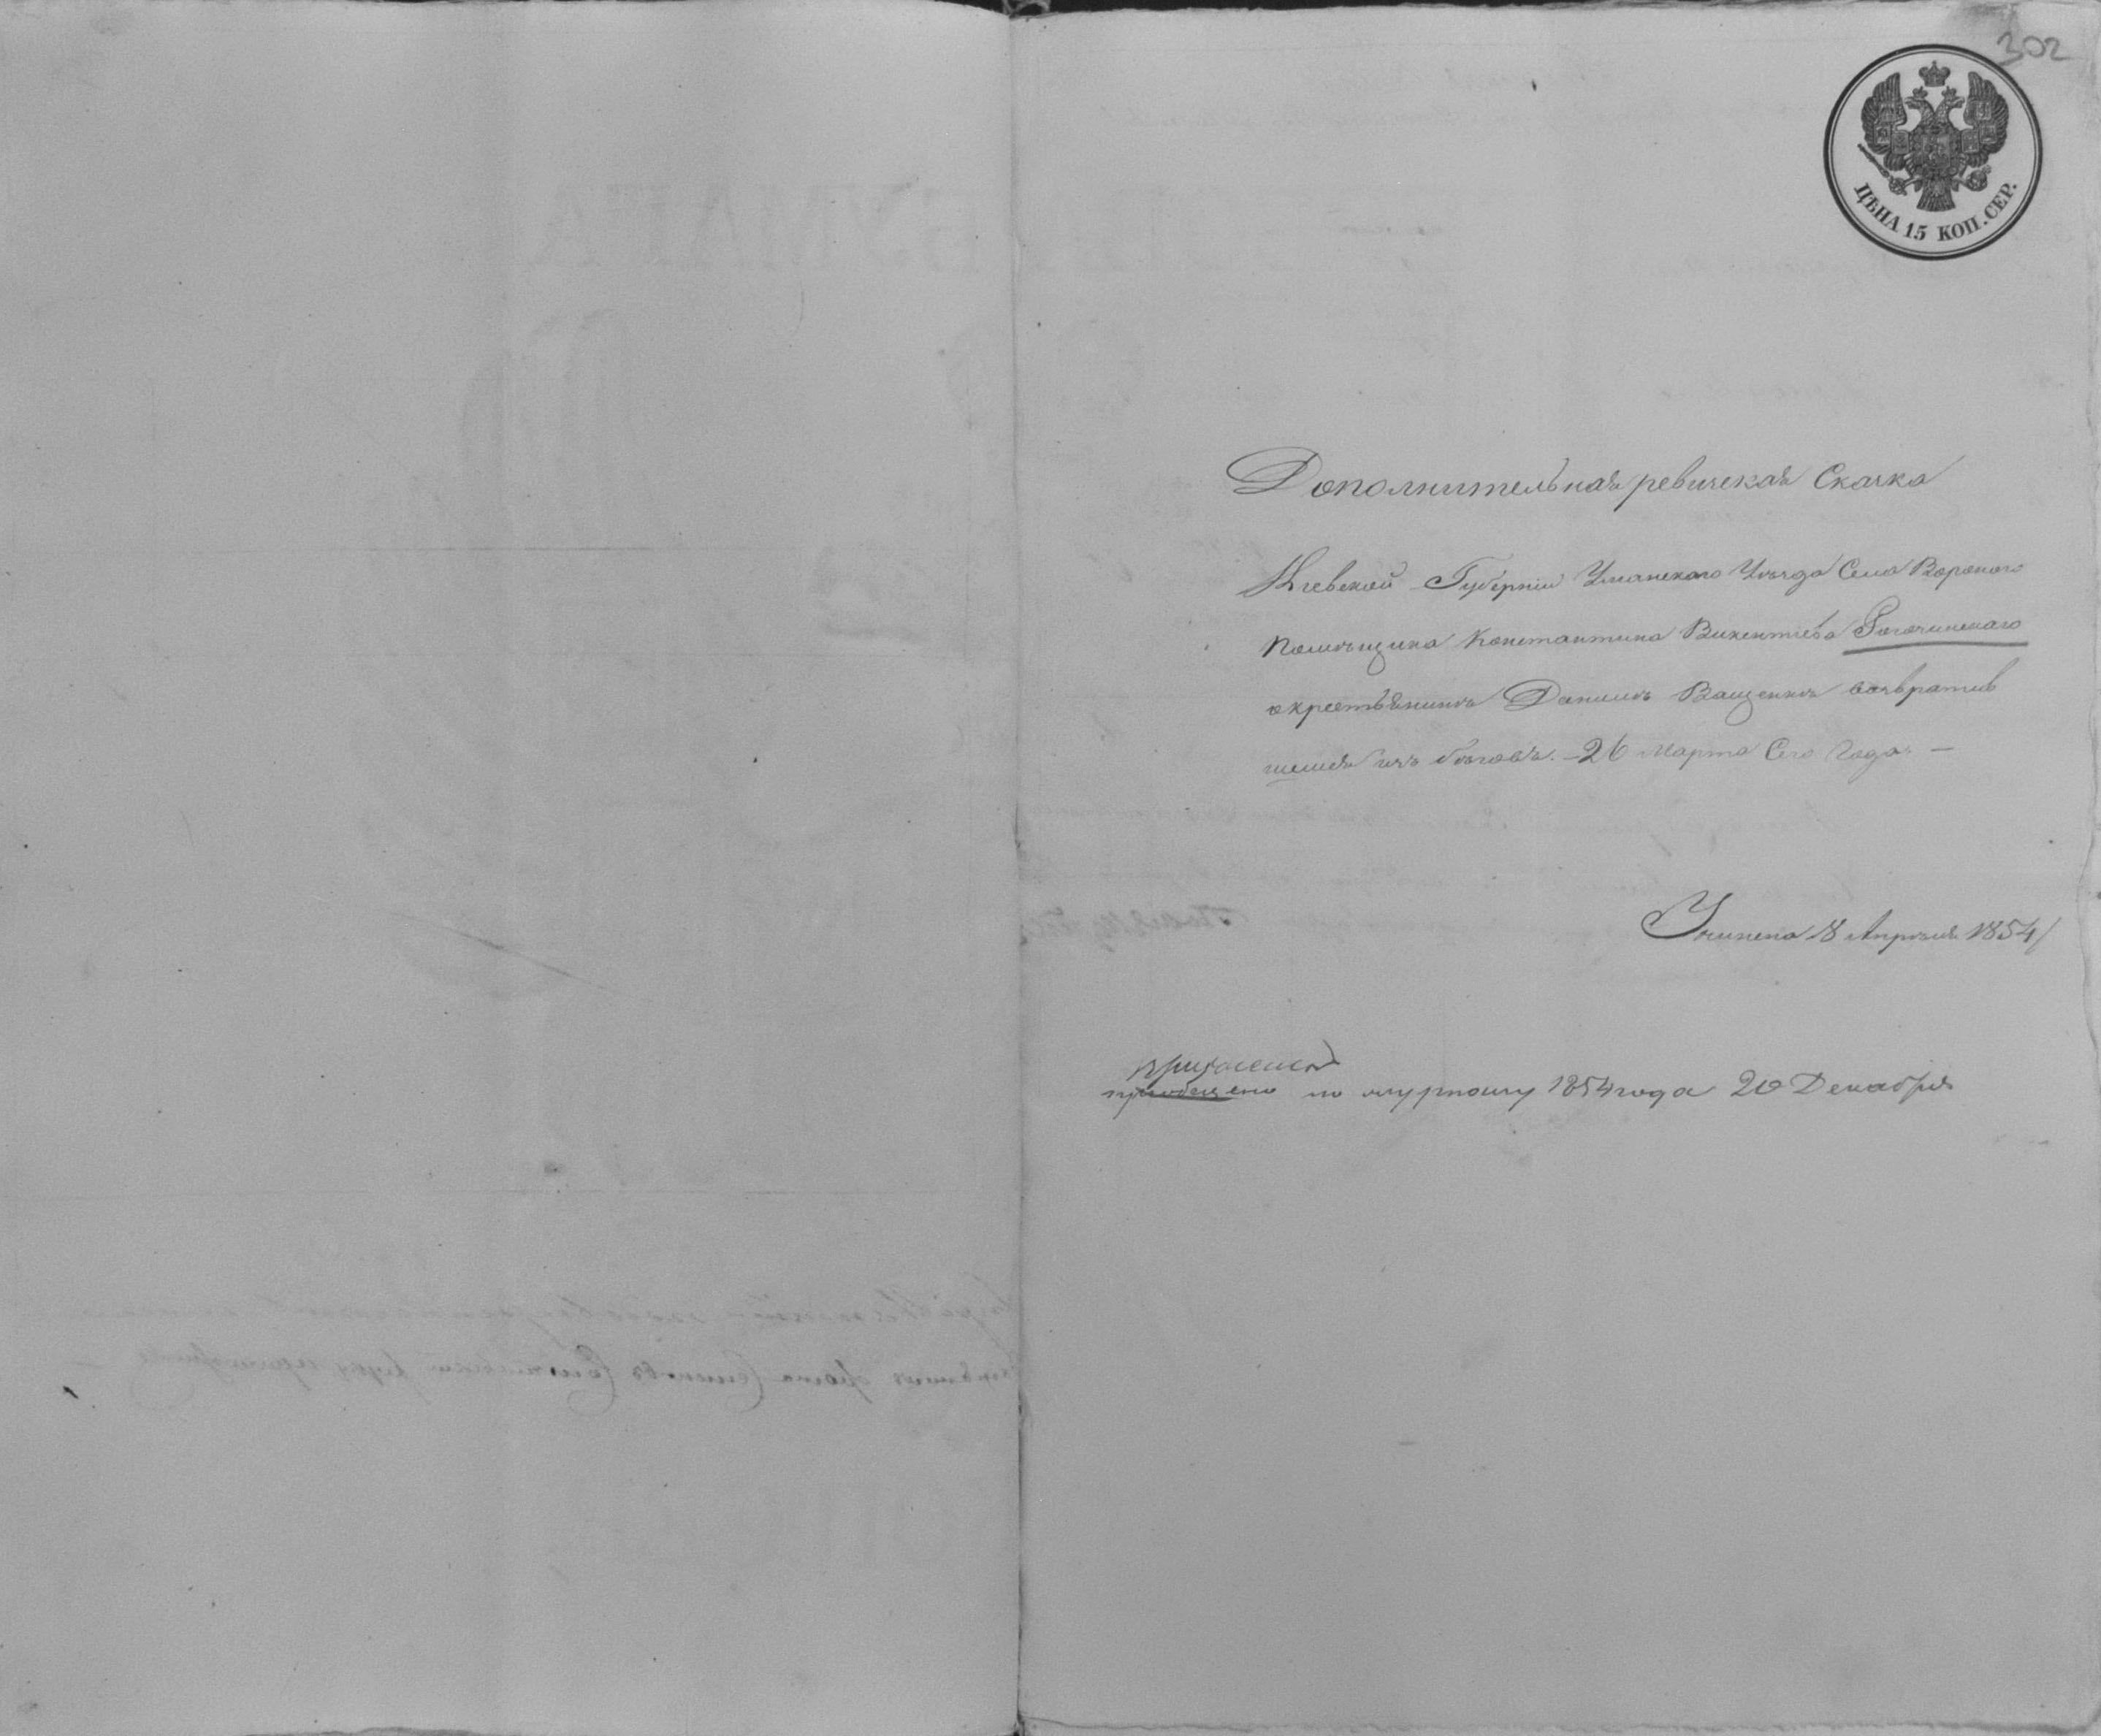 302
ЦѢНА 15 КОП. СЕР.
Дополнительная ревизская Сказка
Киевской Губерніи Уманскаго Уѣзда Села Вороного
помѣщика Константина Викентіева Рогозинскаго
окрестьянинѣ Данилѣ Ващенкѣ возвратив
шемся изъ бѣговъ. – 26 Марта Сего Года –
Учинена 18 Апрѣля 1854
по журналу 1854 года 20 Декабря